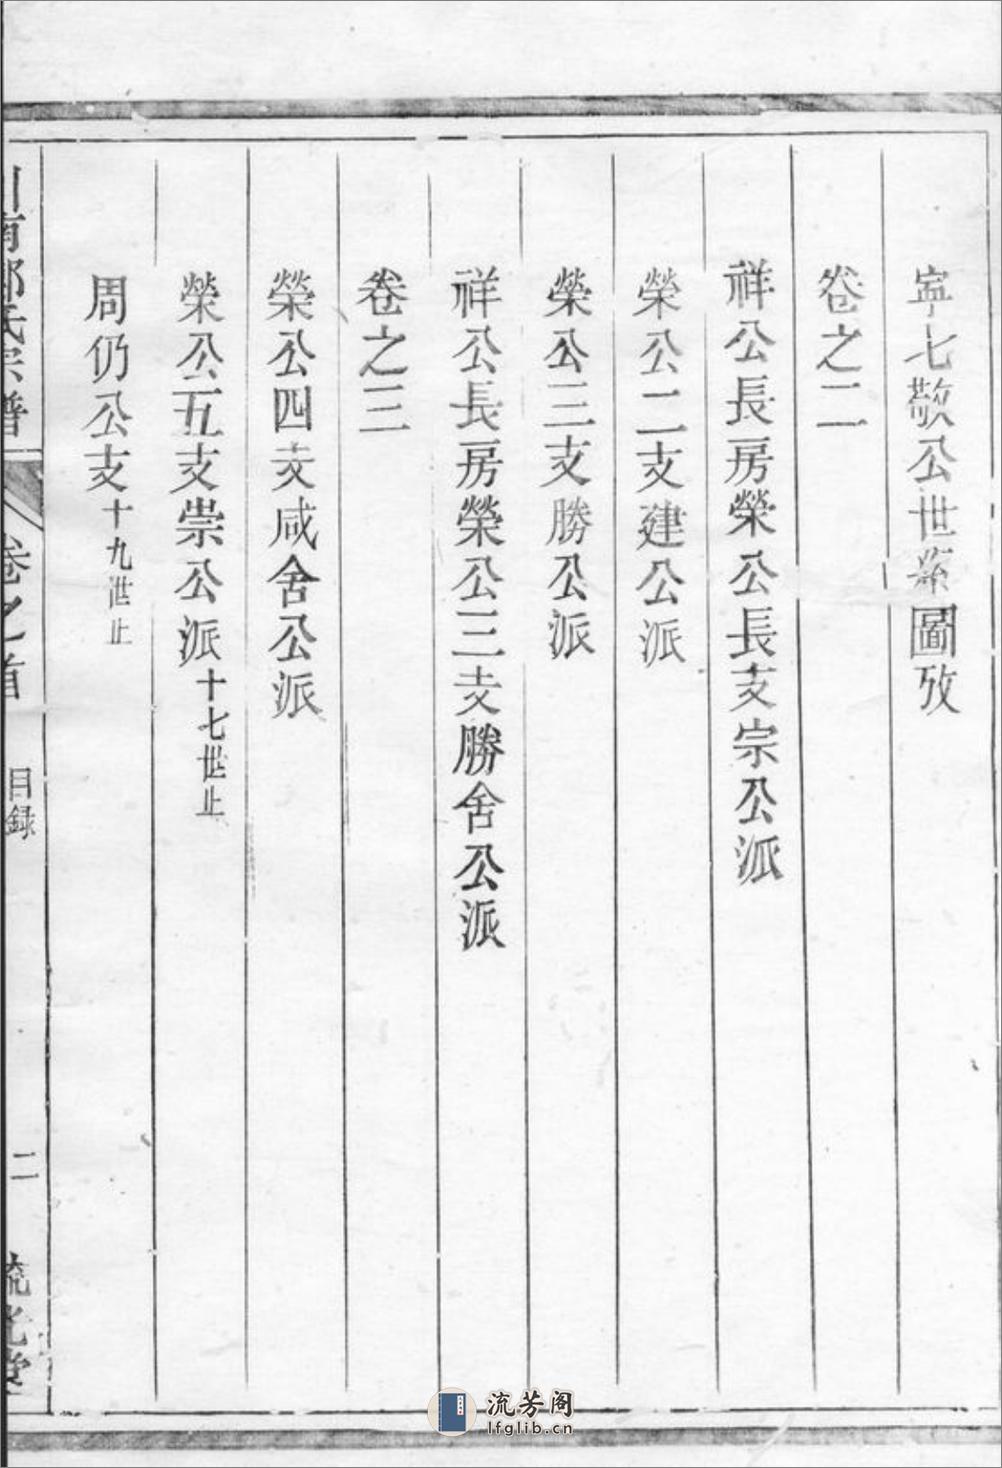 寧七敬公世系圖攷
卷之二
祥公長房榮公長支宗公派
榮公二支建公派
榮公三支勝公派
祥公長房榮公三支勝舍公派
卷之三
榮公四支咸舍公派
榮公五支崇公派十七世止
周仍公支十九世止
氏宗譜
卷之首
目録
二
流芳阁
lfglib.cn